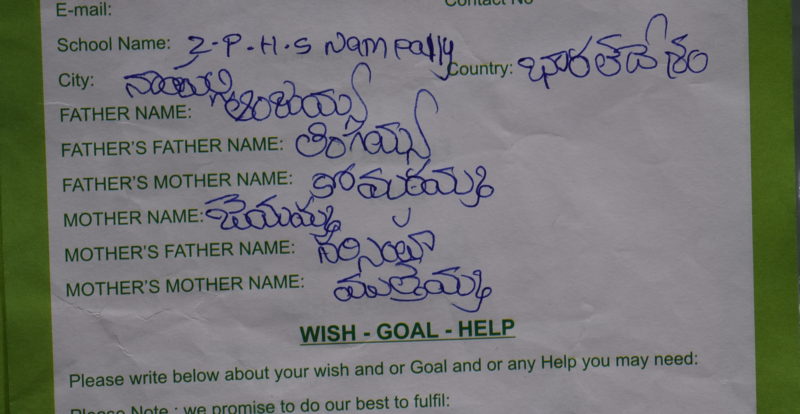 E-mail: Contact No
School Name: Z-P-H-S Nampally
City: నాంపల్లి Country: భారతదేశం
FATHER NAME: అంజయ్య
FATHER'S FATHER NAME: లింగయ్య
FATHER'S MOTHER NAME: కోమరమ్మ
MOTHER NAME: జెయమ్మ
MOTHER'S FATHER NAME: నర్సింహ
MOTHER'S MOTHER NAME: ముత్తెమ్మ
WISH - GOAL - HELP
Please write below about your wish and or Goal and or any Help you may need:
Please Note : we promise to do our best to fulfil: